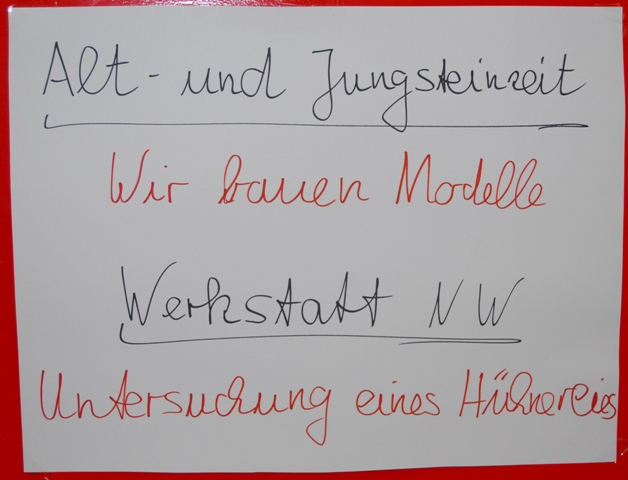 Alt- und Jungsteinzeit
Wir bauen Modelle
Werkstatt NW
Untersuchung eines Hühnereies